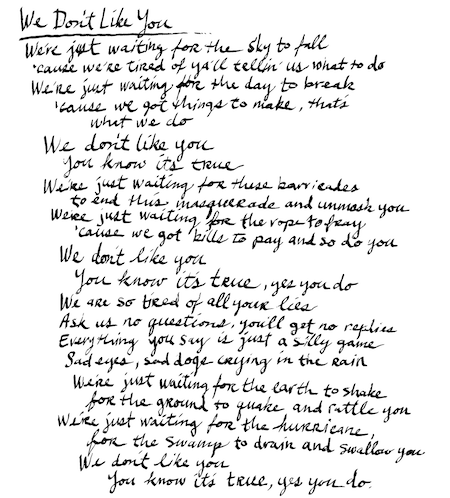 We Don't Like You
We're just waiting for the sky to fall
'cause we're tired of ya'll tellin' us what to do
We're just waiting for the day to break
'cause we got things to make, that's
what we do
We don't like you
You know it's true
We're just waiting for these barricades
to end this masquerade and unmask you
We're just waiting for the rope to fray
'cause we got bills to pay and so do you
We don't like you
You know it's true, yes you do
We are so tired of all your lies
Ask us no questions, you'll get no replies
Everything you say is just a silly game
Sad eyes, sad dogs crying in the rain
We're just waiting for the earth to shake
for the ground to quake and rattle you
We're just waiting for the hurricane,
for the swamp to drain and swallow you
We don't like you
You know it's true, yes you do.